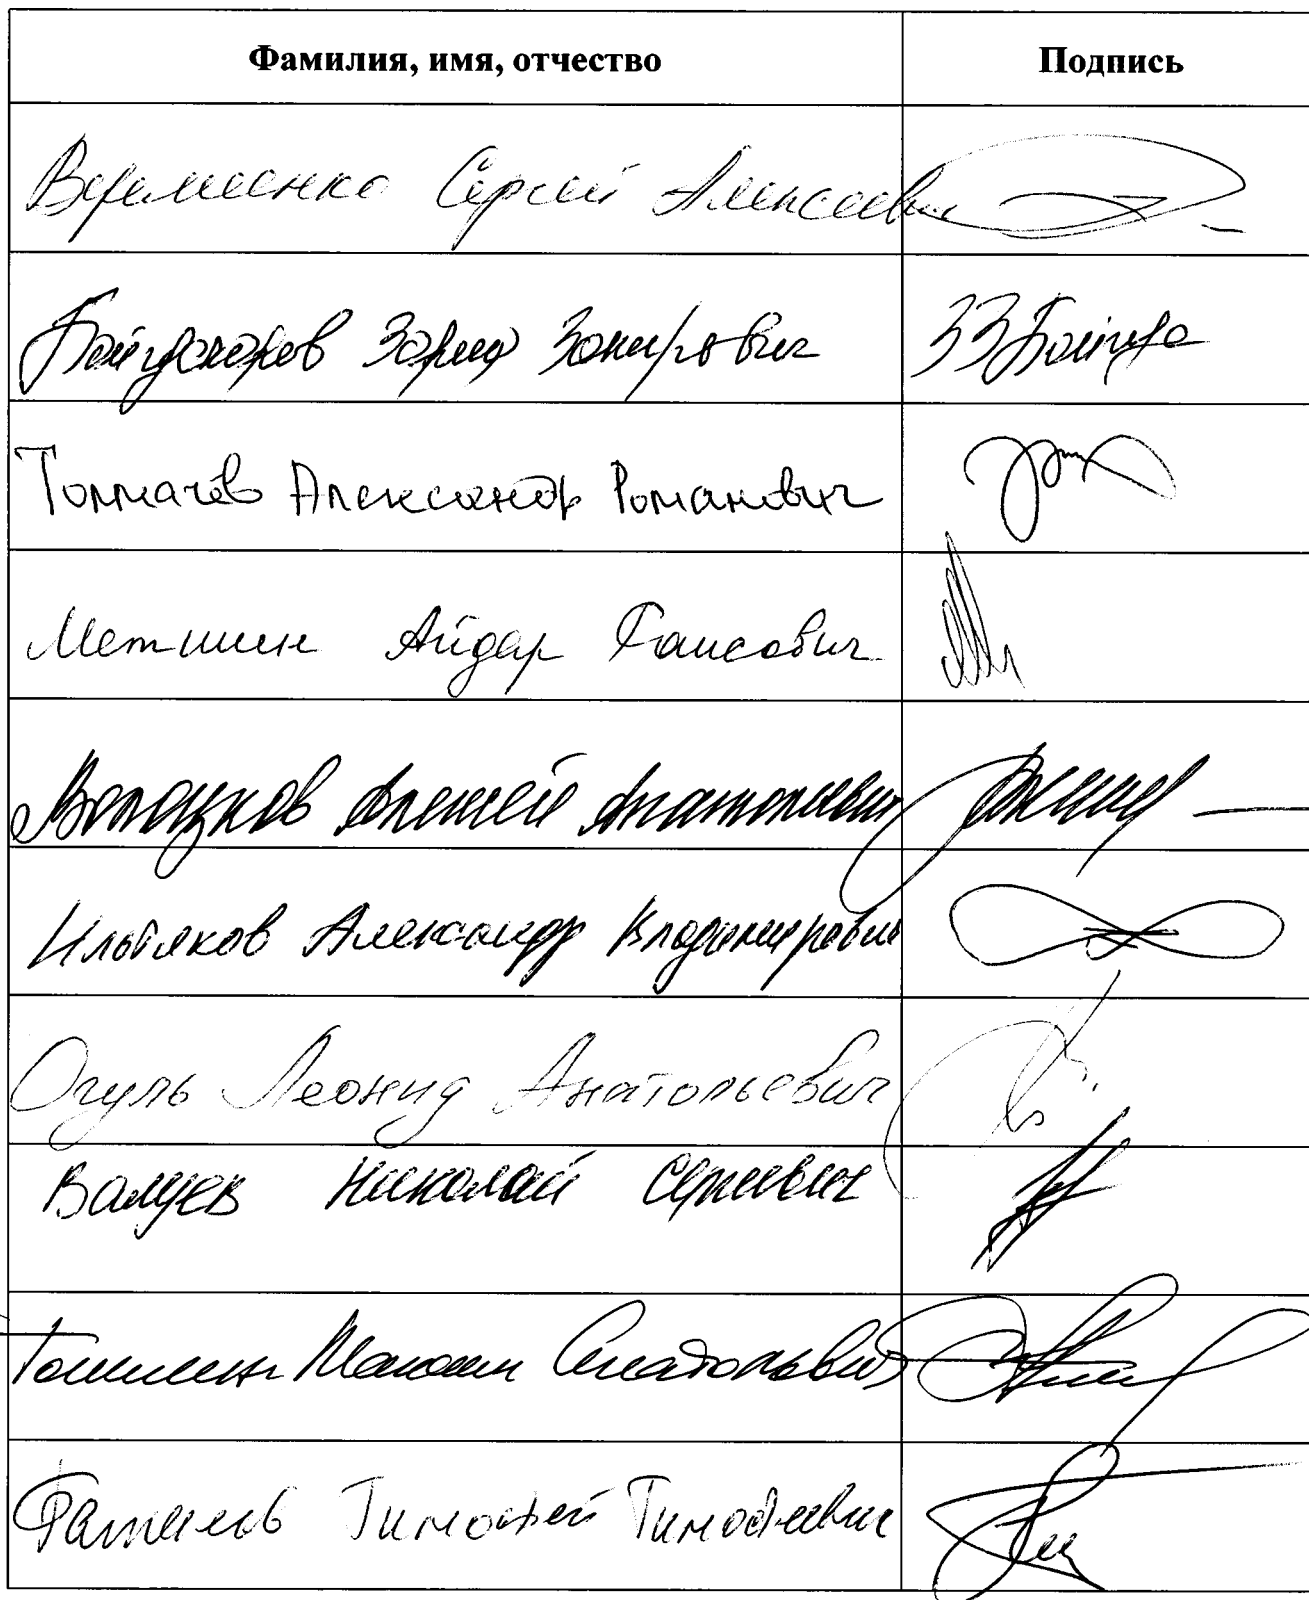 Фамилия, имя, отчество Подпись
Веремеенко Сергей Алексеевич
Байгускаров Зариф Закирович ЗЗБайгус
Толмачёв Александр Романович
Метшин Айдар Раисович
Волоцков Алексей Анатольевич
Ильтяков Александр Владимирович
Огуль Леонид Анатольевич
Валуев Николай Сергеевич
Максим Анатольевич
Баженов Тимофей Тимофеевич